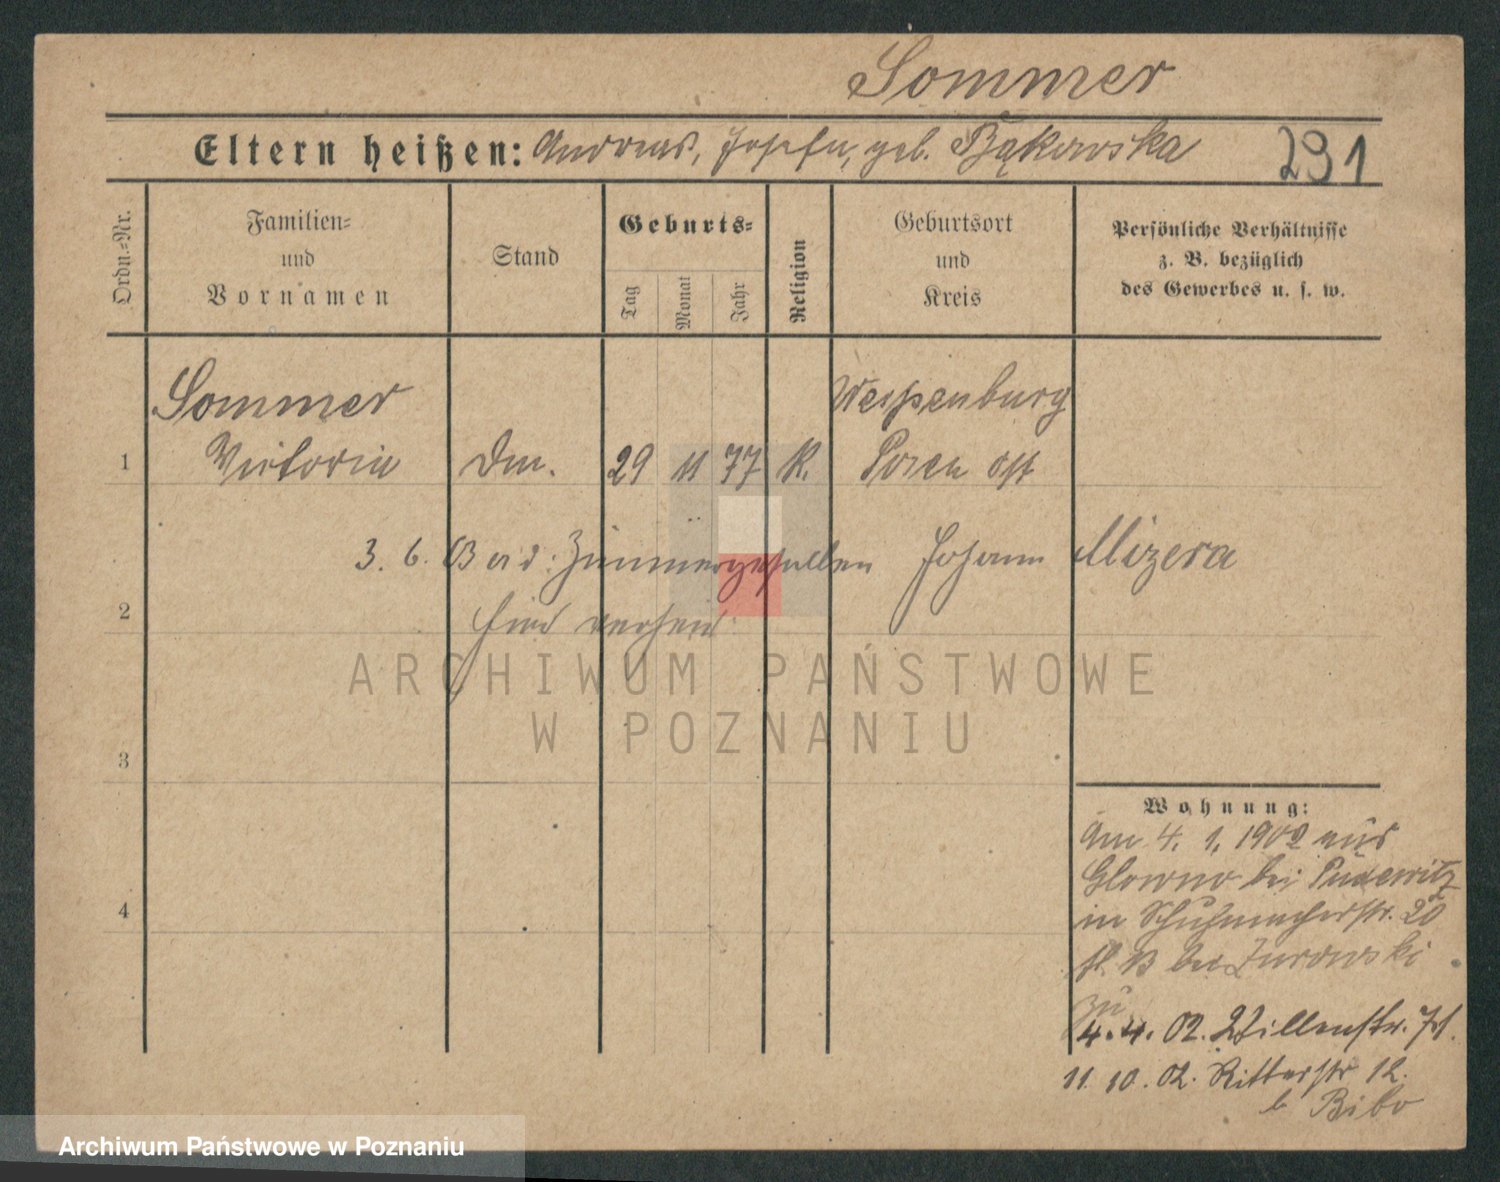 Sommer
Eltern heißen: Andreas, Josefa, geb. Bąkowska 291
Ordn.=Nr.
Familien=
und
Vornamen
Stand
Geburts=
Tag
Monat
Jahr
Religion
Geburtsort
und
Kreis
Persönliche Verhältnisse
z. B. bezüglich
des Gewerbes u. s. w.
Sommer Wespenburg
1 Victoria 29 11 77 K. Posen Ost
3. 6. Zimmergesellen Johann Mizera
2 hier verheir
ARCHIWUM PAŃSTWOWE
W POZNANIU
3
Wohnung:
Am 4. 1. 1902 aus
Glowno bei Pudewitz
in Schuhmacherstr. 20
bei Zurowski
zu
4
4. 4. 02.
11. 10. 02. Ritterstr 12.
b Bibo
Archiwum Państwowe w Poznaniu